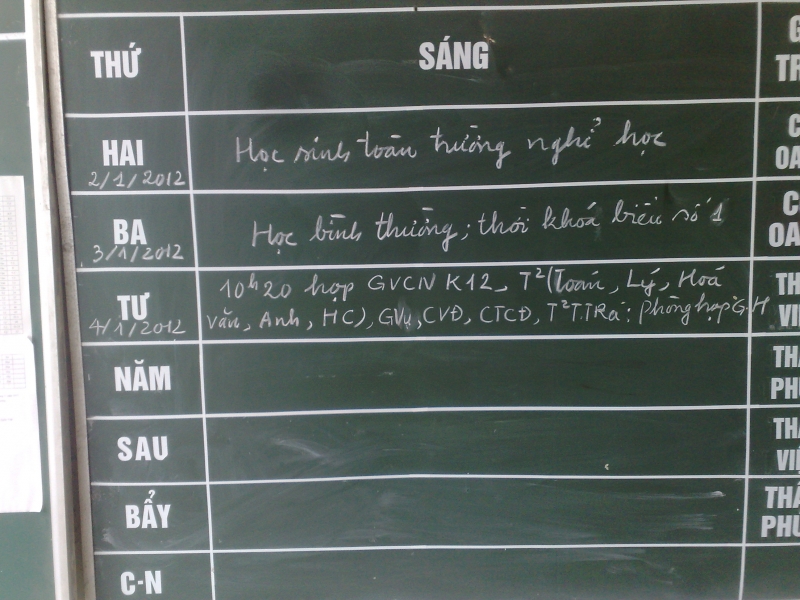 THỨ
SÁNG
G
TR
HAI
2/1/2012
Học sinh toàn trường nghỉ học
C
OA
BA
3/1/2012
Học bình thường; thời khoá biểu số 1
C
OA
TƯ
4/1/2012
10h20 họp GVCN K12, T²(Toán, Lý, Hoá
văn, Anh, HC), GVụ, CVĐ, CTCĐ, T²TTRa: phòng họp G-H
TH
VI
NĂM
THA
PHU
SAU
THA
VI
BẨY
THÁ
PHU
C-N